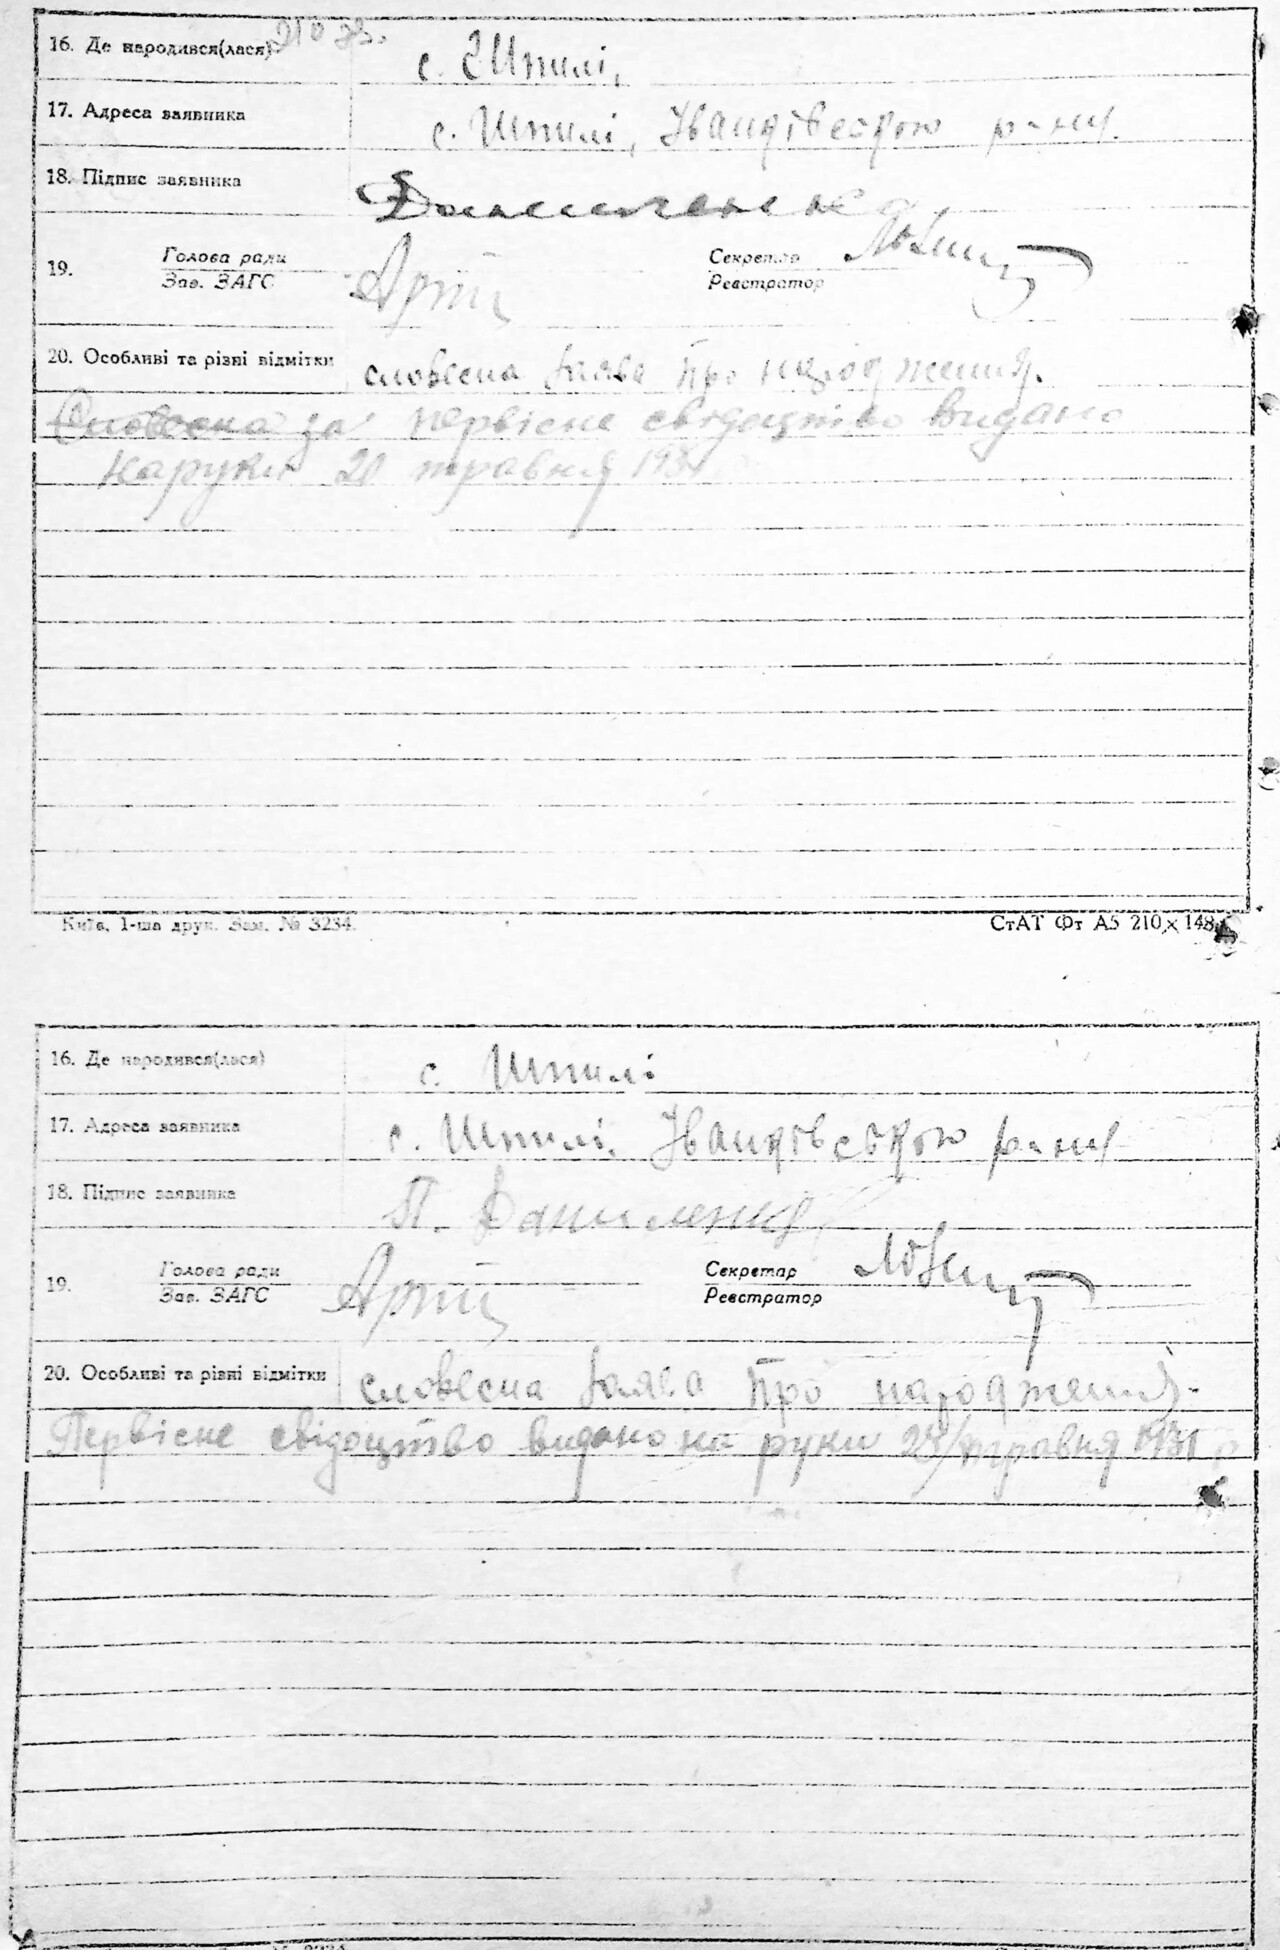 16. Де народився(лася)
с. Шпилі,
17. Адреса заявника
с. Шпилі, Іванківського р-ну
18. Підпис заявника
Даниленко
19. Голова ради
Зав. ЗАГС
Секретар
Реєстратор
20. Особливі та різні відмітки словесна заява про народження.
Словесна за первісне свідоцтво видано
на руки 20 травня 193
Київ, 1-ша друк. Зам. № 3234. СтАТ Фт А5 210×148
16. Де народився(лася)
с. Шпилі
17. Адреса заявника
с. Шпилі, Іванківського р-ну
18. Підпис заявника
П. Даниленко
19. Голова ради
Зав. ЗАГС
Секретар
Реєстратор
20. Особливі та різні відмітки словесна заява про народження.
Первісне свідоцтво видано на руки травня 1931 р